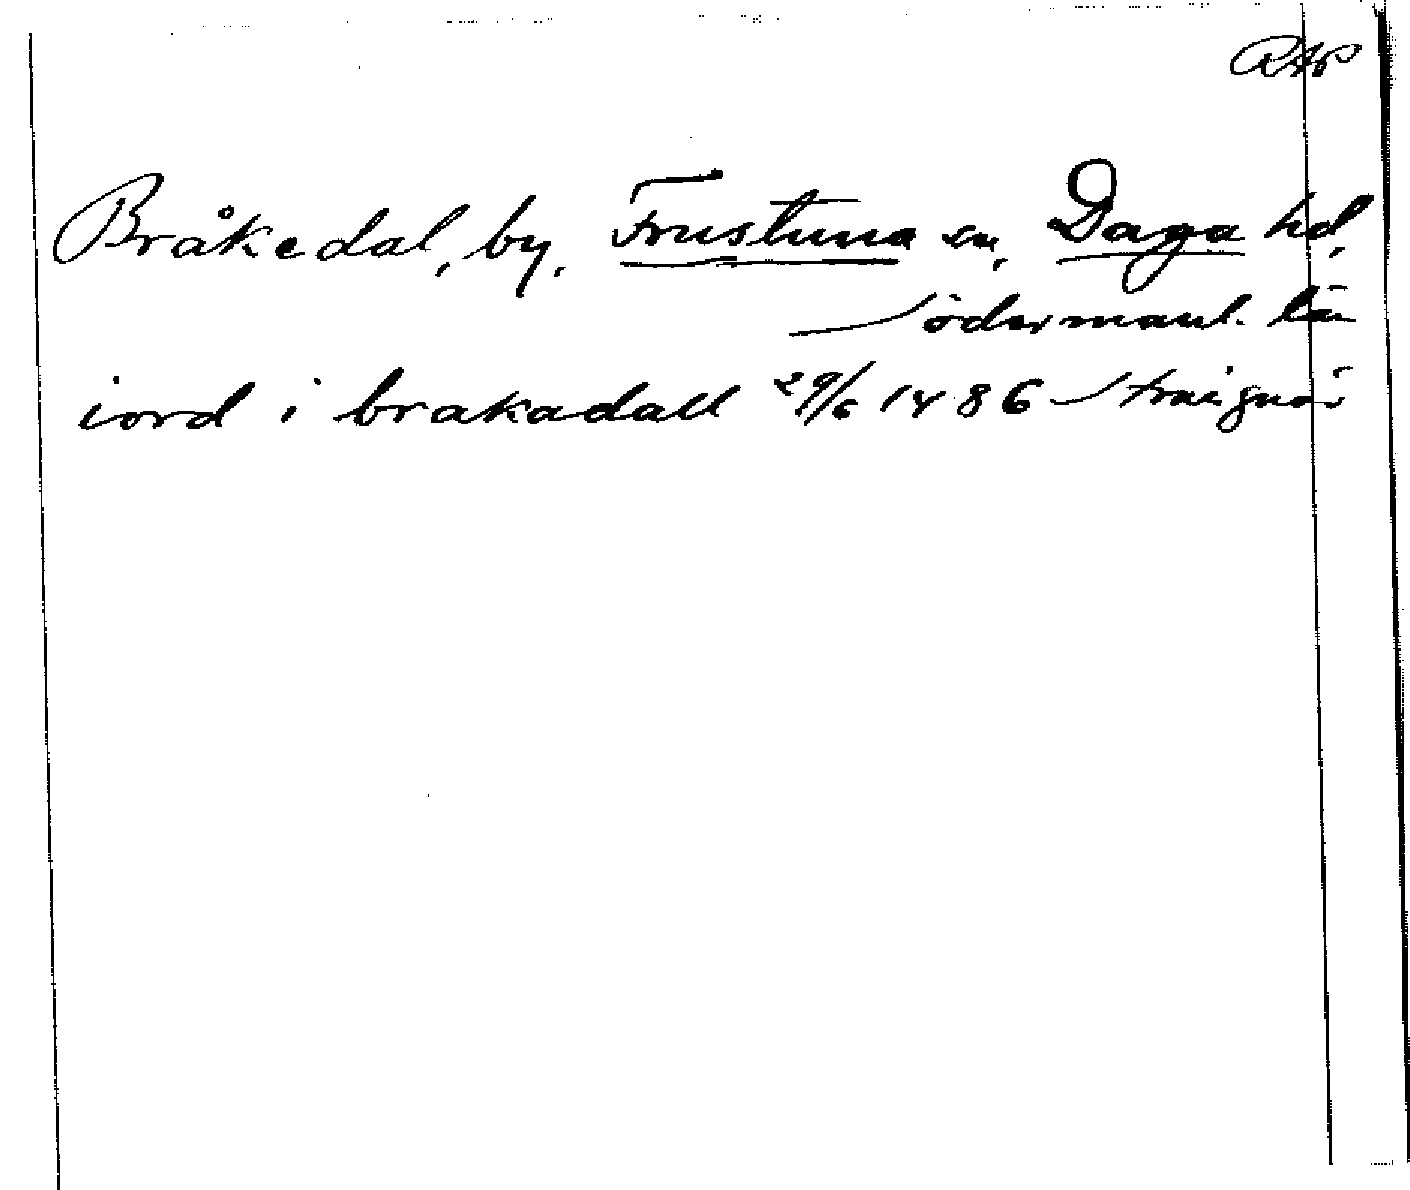 RAP
Bråkedal, by, Frustuna sn, Daga hd,
Södermanl. län
iord i brakadall 29/6 1486 Strängnäs